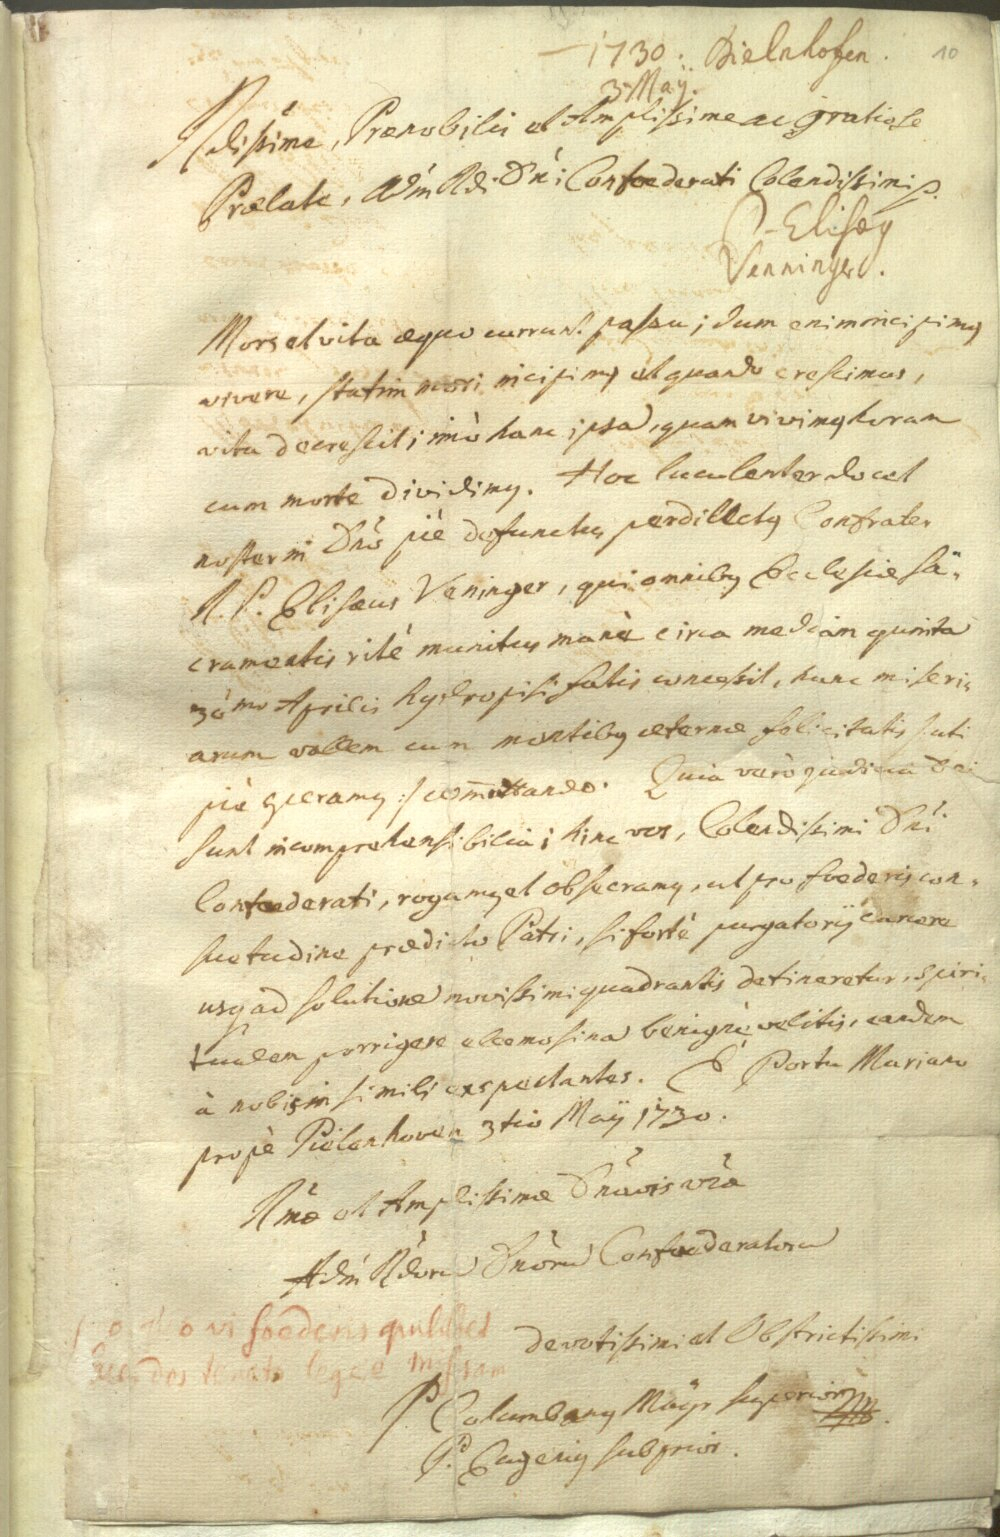 1730. Bielnhofen. 10
3. Maÿ.
Rdissime, Praenobilis et Amplissime ac Gratiose
Praelate, Adm Rdi Dni Confoederati Colendissimi p.
P. Elisaeq
Venninger.
Mors et vita aequo currunt passu; dum enim incipimq
vivere, statim mori incipimq et quando crescimus,
vita decrescit; imò hanc ipsā, quam vivimq horam
cum morte dividimq. Hoc luculenter docet
noster in Dnō piè defunctus perdilectq Confrater
R. P. Elisaeus Veninger, qui omnibq Ecclesiae Sa-
cramentis ritè munitus manè circa mediam quintā
30mo Aprilis hydropisi fatis concessit, hanc miseri-
arum vallem cum montibq aeternae felicitatis /: uti
piè speramq :/ com̄utando. Quia verò judicia Dei
sunt incomprehensibilia; hinc vos, Colendissimi Dn̄i
Confoederati, rogamq et obsecramq, ut pro foederis con-
suetudine praedicto Patri, si fortè purgatorij carcere
usq ad solutionē novissimi quadrantis detineretur, spiri-
tualem porrigere eleemosinā benignè velitis, eandem
à nobis in simili expectantes. E Portu Mariano
propè Pielenhoven 3tio Maÿ 1730.
Rmae et Amplissimae Dnāōis vrāe
Adm Rdorū Dnōrū Confoederatorū
vi foederis quilibet
legat Missam
devotissimi et Obstrictissimi
P Columbanq Maÿr Superior mpp.
P. Eugeniq subprior.